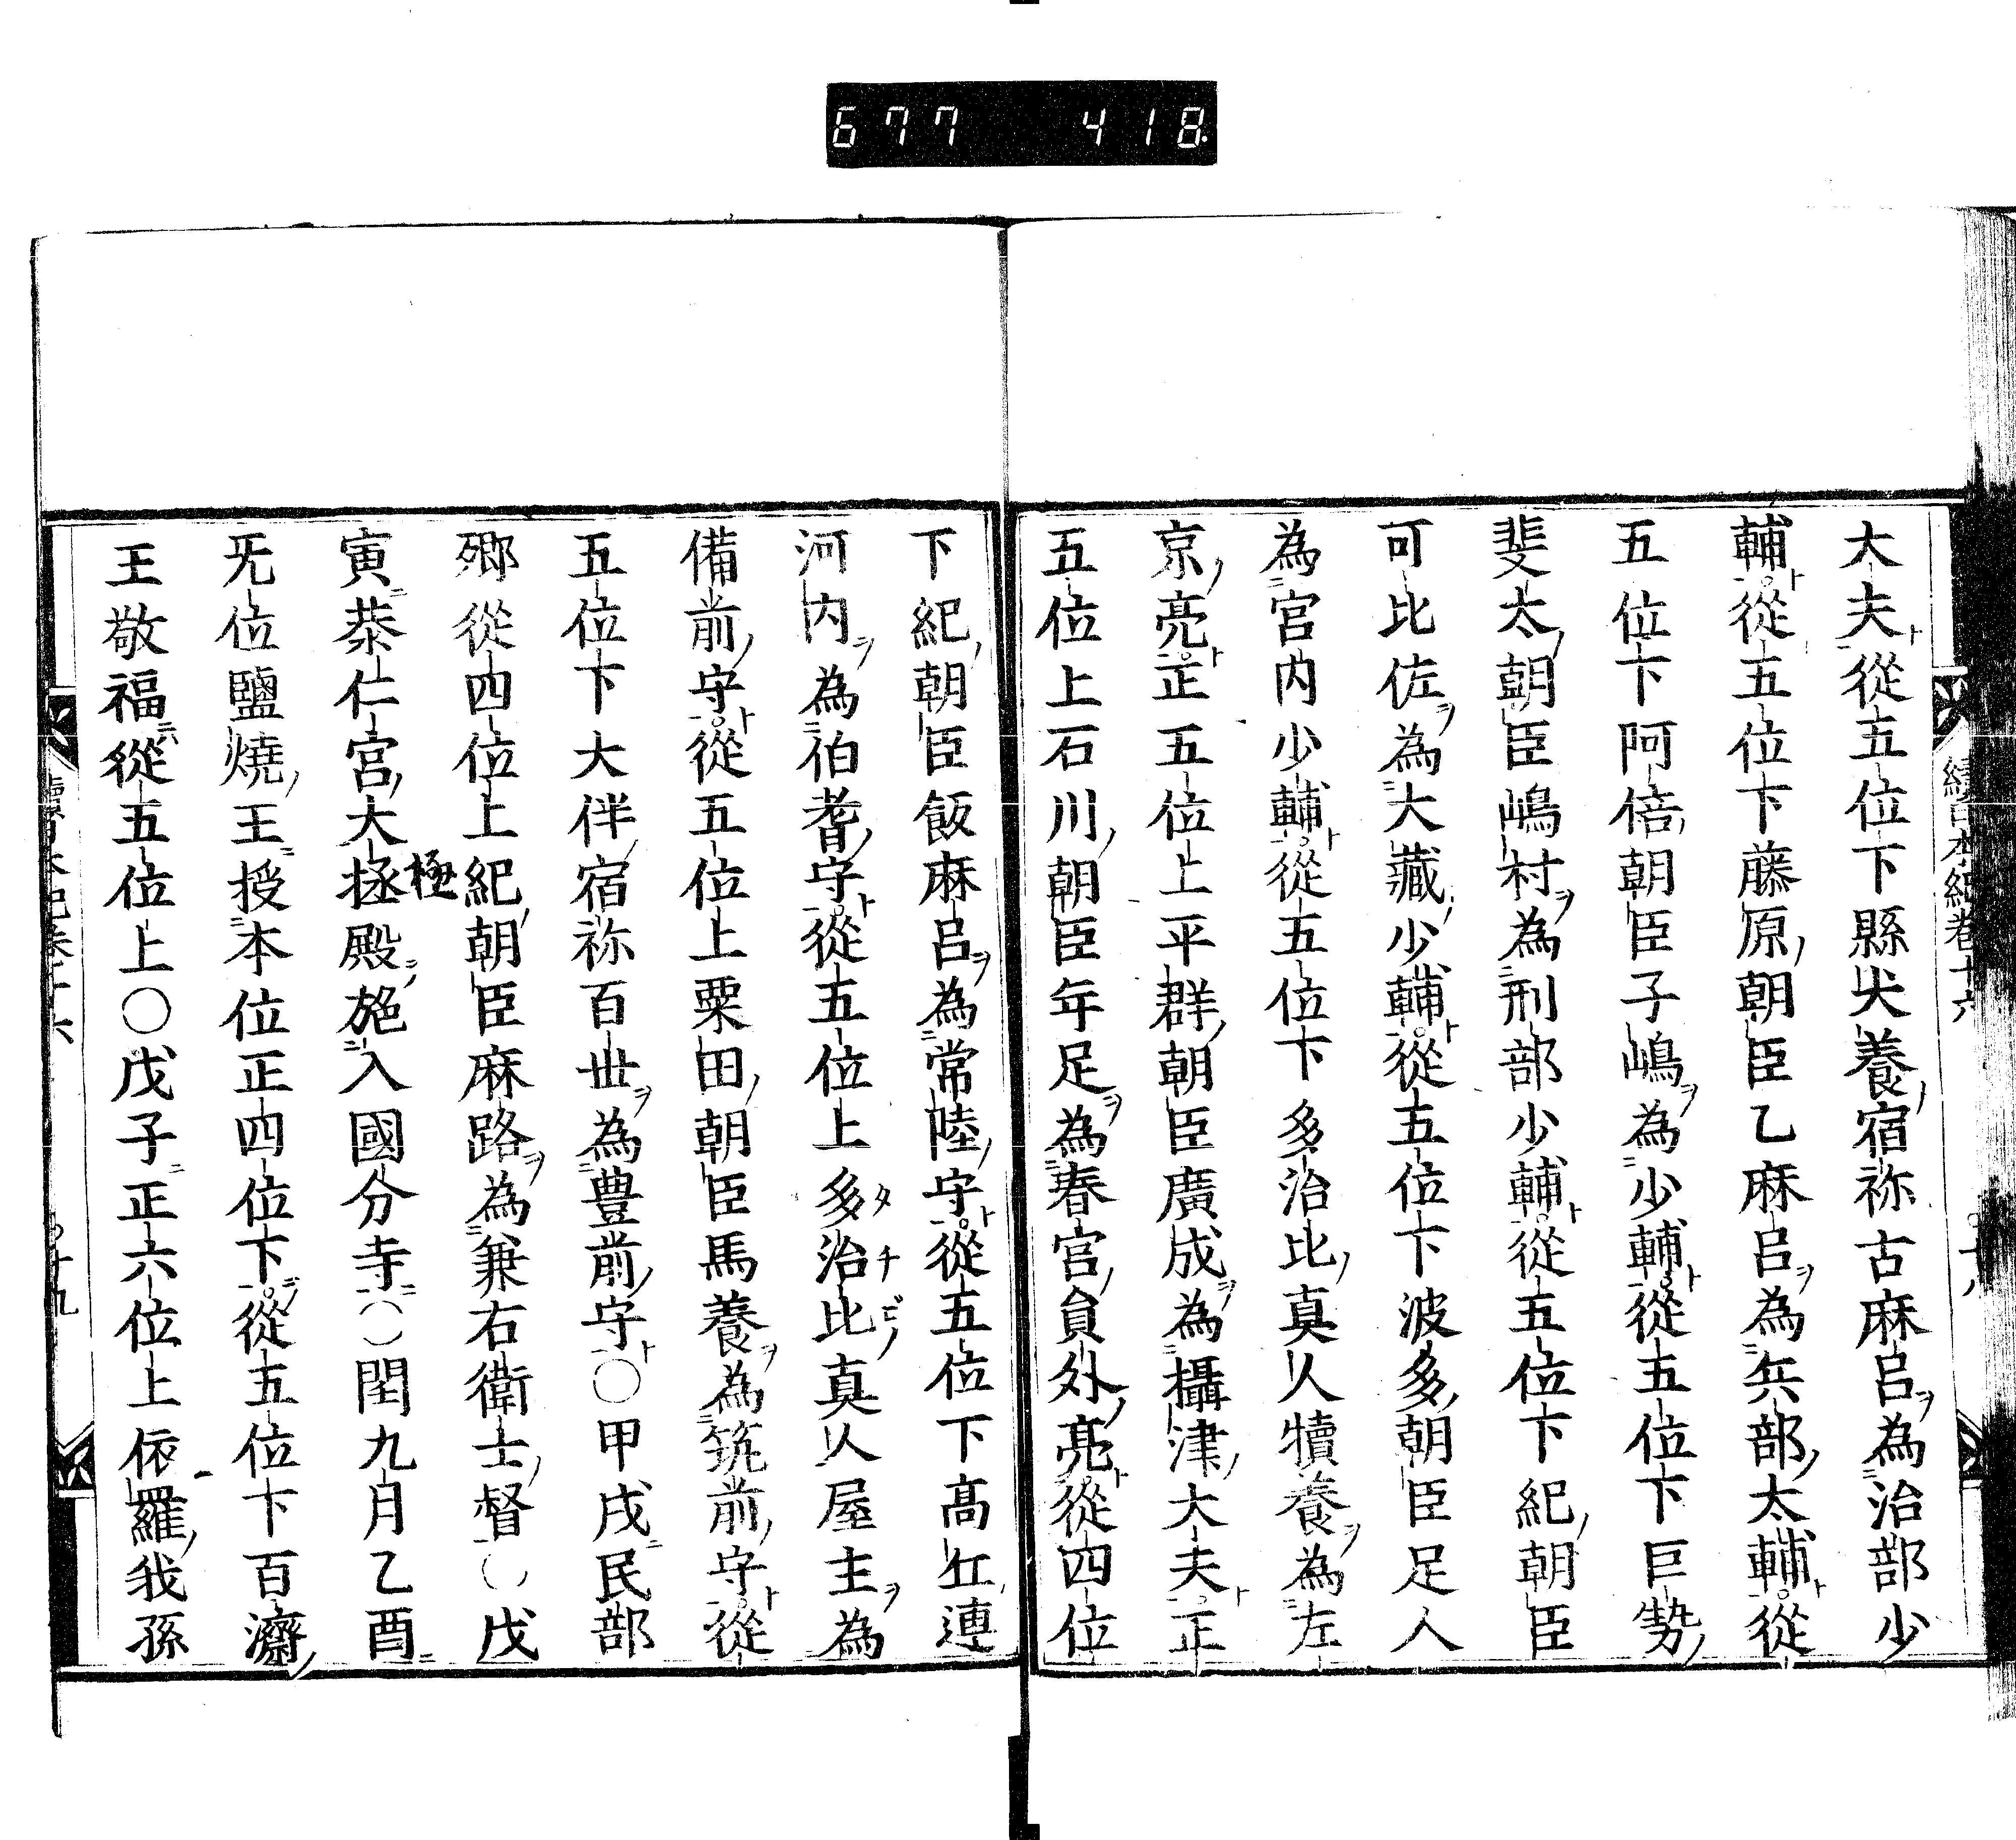 677 418
續日本紀卷十六
大夫從五位下縣犬養宿祢古麻呂為治部少
輔從五位下藤原朝臣乙麻呂為兵部太輔從
五位下阿倍朝臣子嶋為少輔從五位下巨勢
斐太朝臣嶋村為刑部少輔從五位下紀朝臣
可比佐為大藏少輔從五位下波多朝臣足人
為宮内少輔從五位下多治比真人犢養為左
京亮正五位上平群朝臣廣成為攝津大夫正
五位上石川朝臣年足為春宮貟外亮從四位
下紀朝臣飯麻呂為常陸守從五位下髙丘連
河内為伯耆守從五位上多治比真人屋主為
備前守從五位上粟田朝臣馬養為筑前守從
五位下大伴宿祢百丗為豊前守○甲戌民部
卿從四位上紀朝臣麻路為兼右衛士督○戊
寅恭仁宮大拯殿施入國分寺○閏九月乙酉
極
旡位鹽燒王授本位正四位下從五位下百濟
王敬福從五位上○戊子正六位上依羅我孫
十九